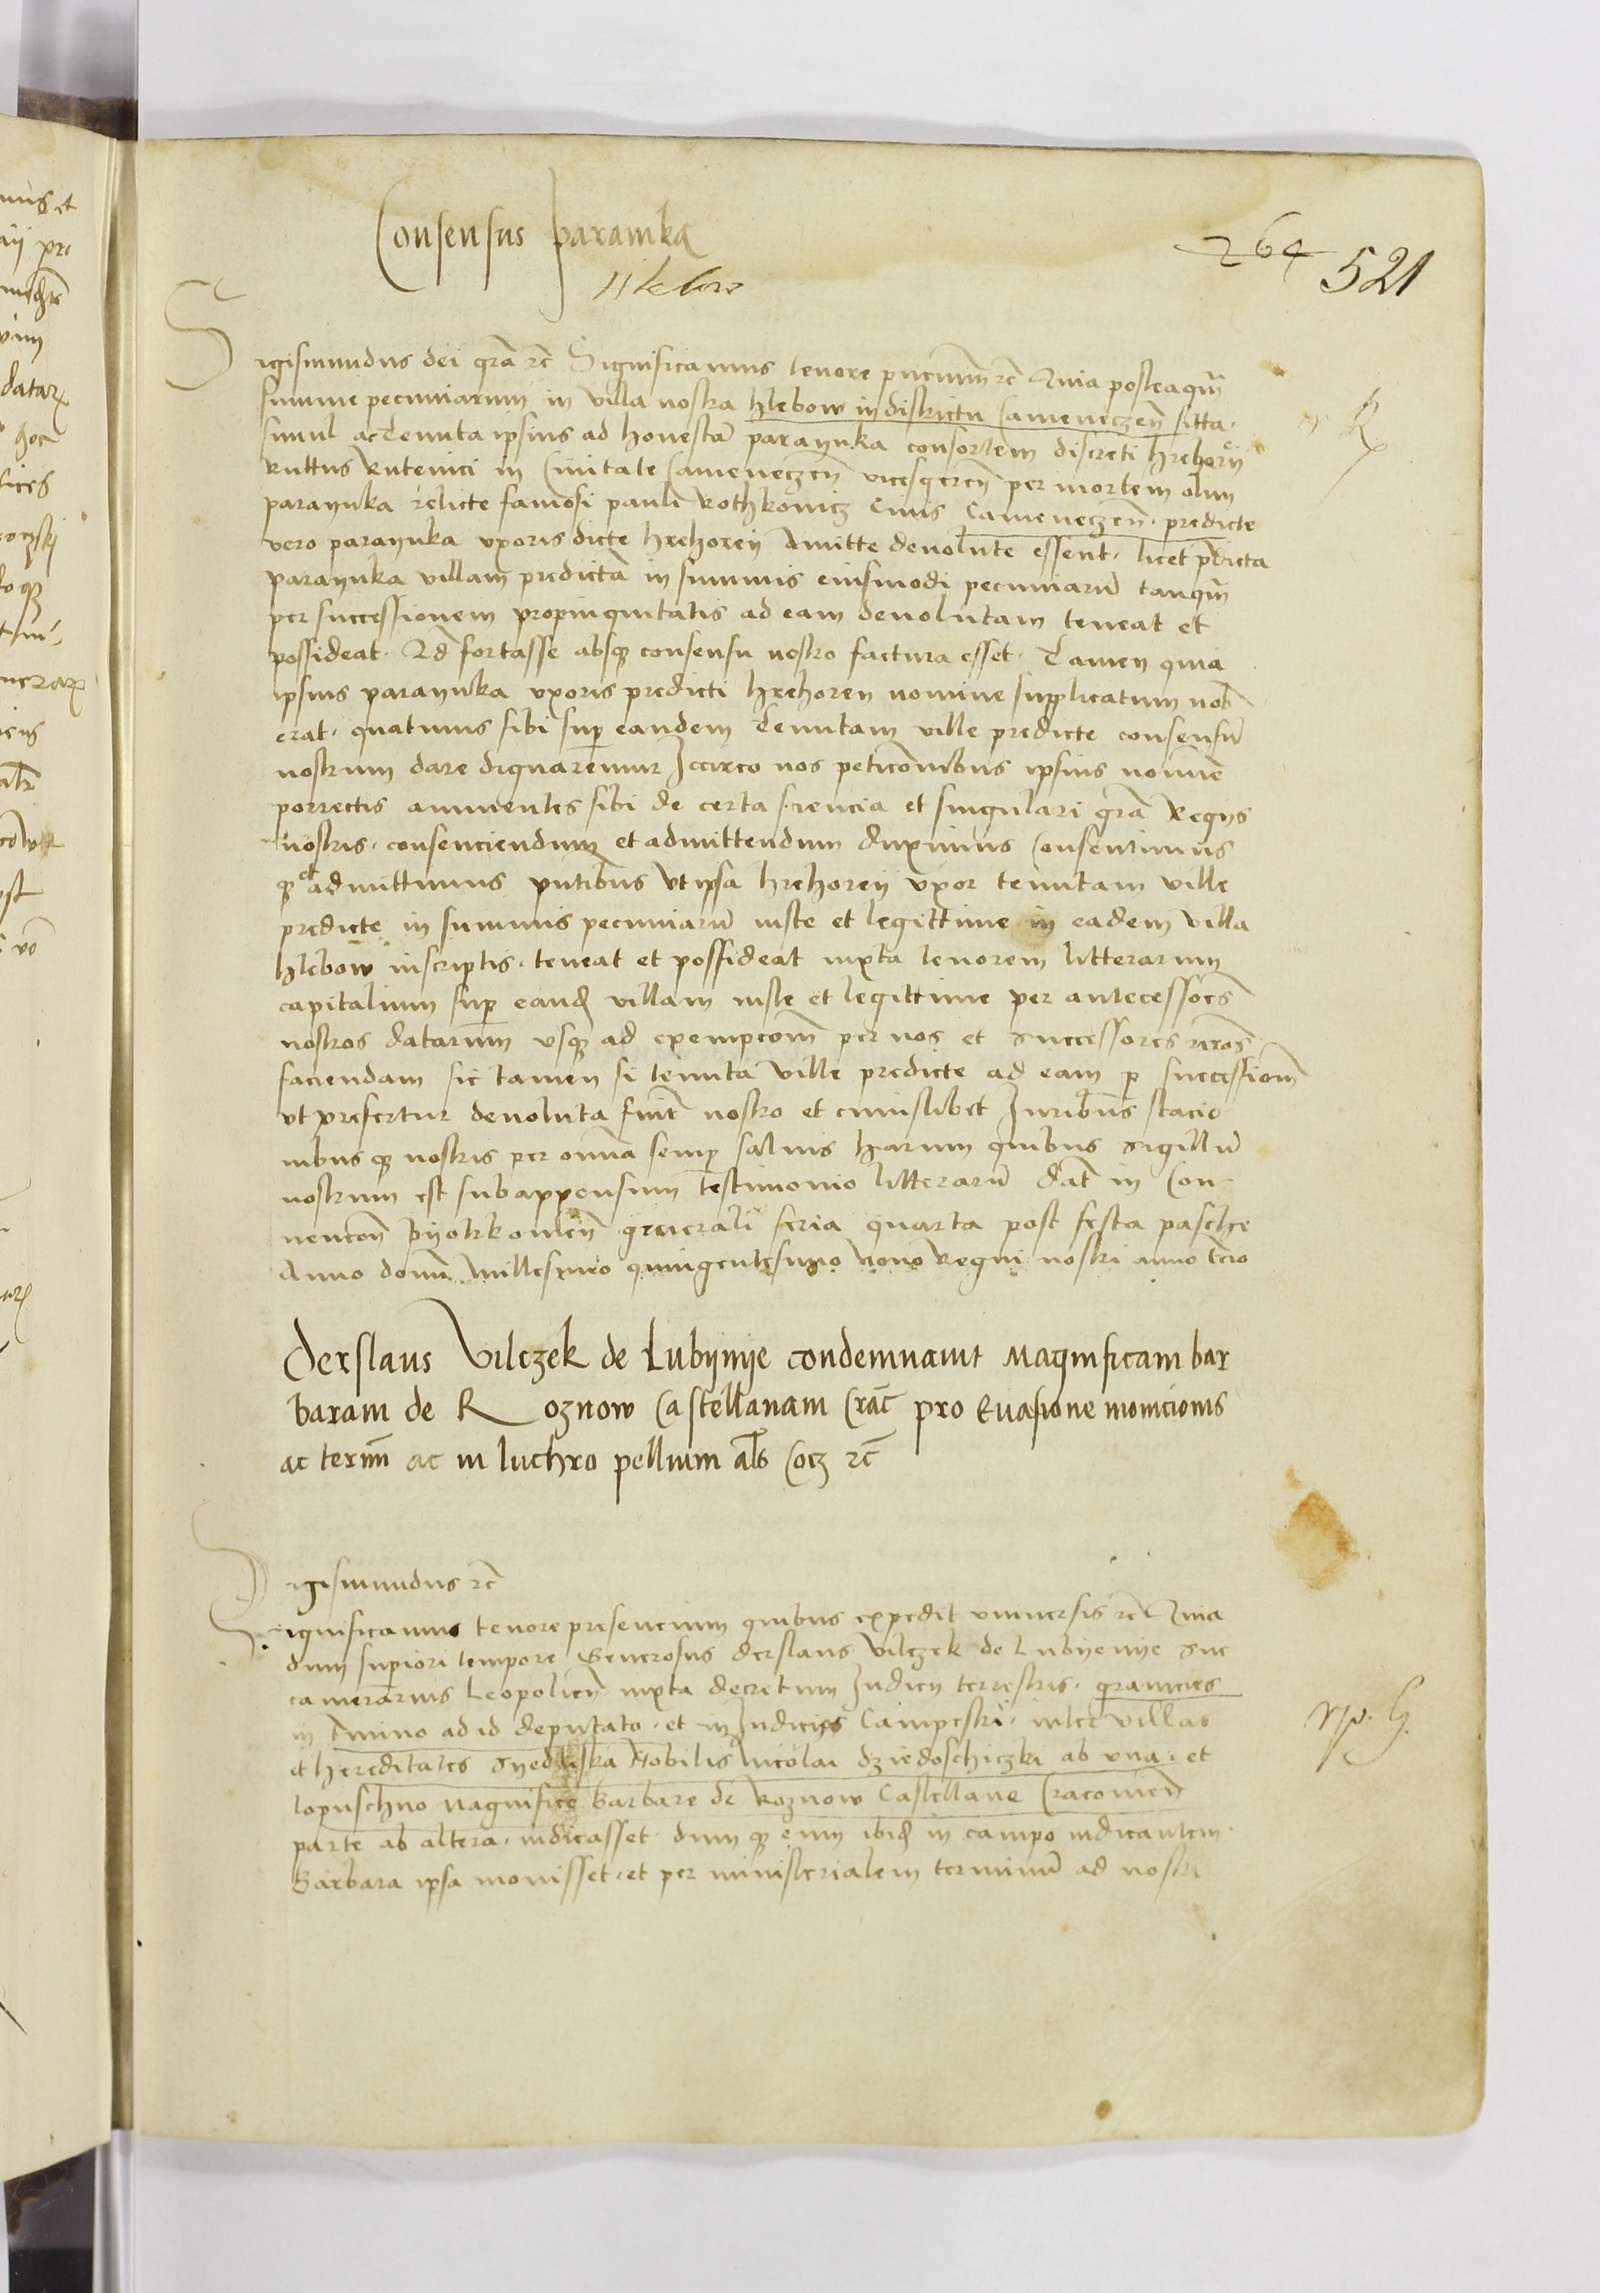 Consensus paraznka
Hlebow
264
521
Sigismundus dei gra rc Significamus tenore pntium rc Quia posteaqm
summe pecuniarum in villa nostra hlebow in districtu Cameneczen sitta.
simul ac Tenuta ipsius ad honestam paraynka consortem discreti hrehorey
Ruttus Rutenici in Civitate Cameneczen vicesgeren per mortem olim
paraynka relicte famosi pauli Rothkovicz Civis Cameneczen. predicte
vero paraynka uxoris dicte hrehorey Amitte devolute essent. licet pdicta
paraynka villam predictam in summis eiusmodi pecuniaru tanqm
per successionem propinquitatis ad eam devolutam teneat et
possideat. Qd fortasse absq consensu nostro factura esset. Tamen quia
ipsius paraynka uxoris predicti hrehorey nomine supplicatum nob
erat. quatinus sibi sup eandem Tenutam ville predicte consensu
nostrum dare dignaremur Iccirco nos peticionibus ipsius nomine
porrectis annuentes sibi de certa sciencia et singulari gra Regiis
nostris. consenciendum et admittendum duximus Consentimus
q et admittimus pntibus Ut ipsa hrehorey uxor tenutam ville
predicte in summis pecuniaru iuste et legittime in eadem villa
hlebow inscriptis. teneat et possideat iuxta tenorem litterarum
capitalium sup eand villam iuste et legittime per antecessores
nostros datarum usq ad exempcom per nos et successores nros
faciendam sic tamen si tenuta ville predicte ad eam p successiom
ut prefertur devoluta fuit nostro et cuiuslibet Iuribus stacio
nibus q nostris per omnia semp salvis harum quibus sigillu
nostrum est subappensum testimonio litteraru dat in Con-
vencon Pyotrkovien generali feria quarta post festa pasche
Anno domi Millesimo quingentesimo nono Regni nostri anno tcio
Derslaus Vilczek de Lubynye condemnavit Magnificam bar
baram de Roznow Castellanam Crac pro Evasione monicionis
ac termi ac in luchro pellium als Cocz rc
Sigismundus rc
Significamus tenore presencium quibus expedit universis rc Quia
dum supiori tempore Generosus derslaus Vilczek de Lubyenye Suc
camerarius Leopolien iuxta decretum Iudicii terrestris. granicies
in Tmino ad id deputato. et in Iudiciis Campestri. inter villas
et hereditates Syedliska Nobilis Nicolai dziedoschiczki ab una. et
lopuschno Magnifice Barbare de Roznow Castellane Cracovien
parte ab altera. iudicasset. dum q eum ibid in campo iudicantem.
Barbara ipsa monisset. et per ministerialem terminu ad nostri